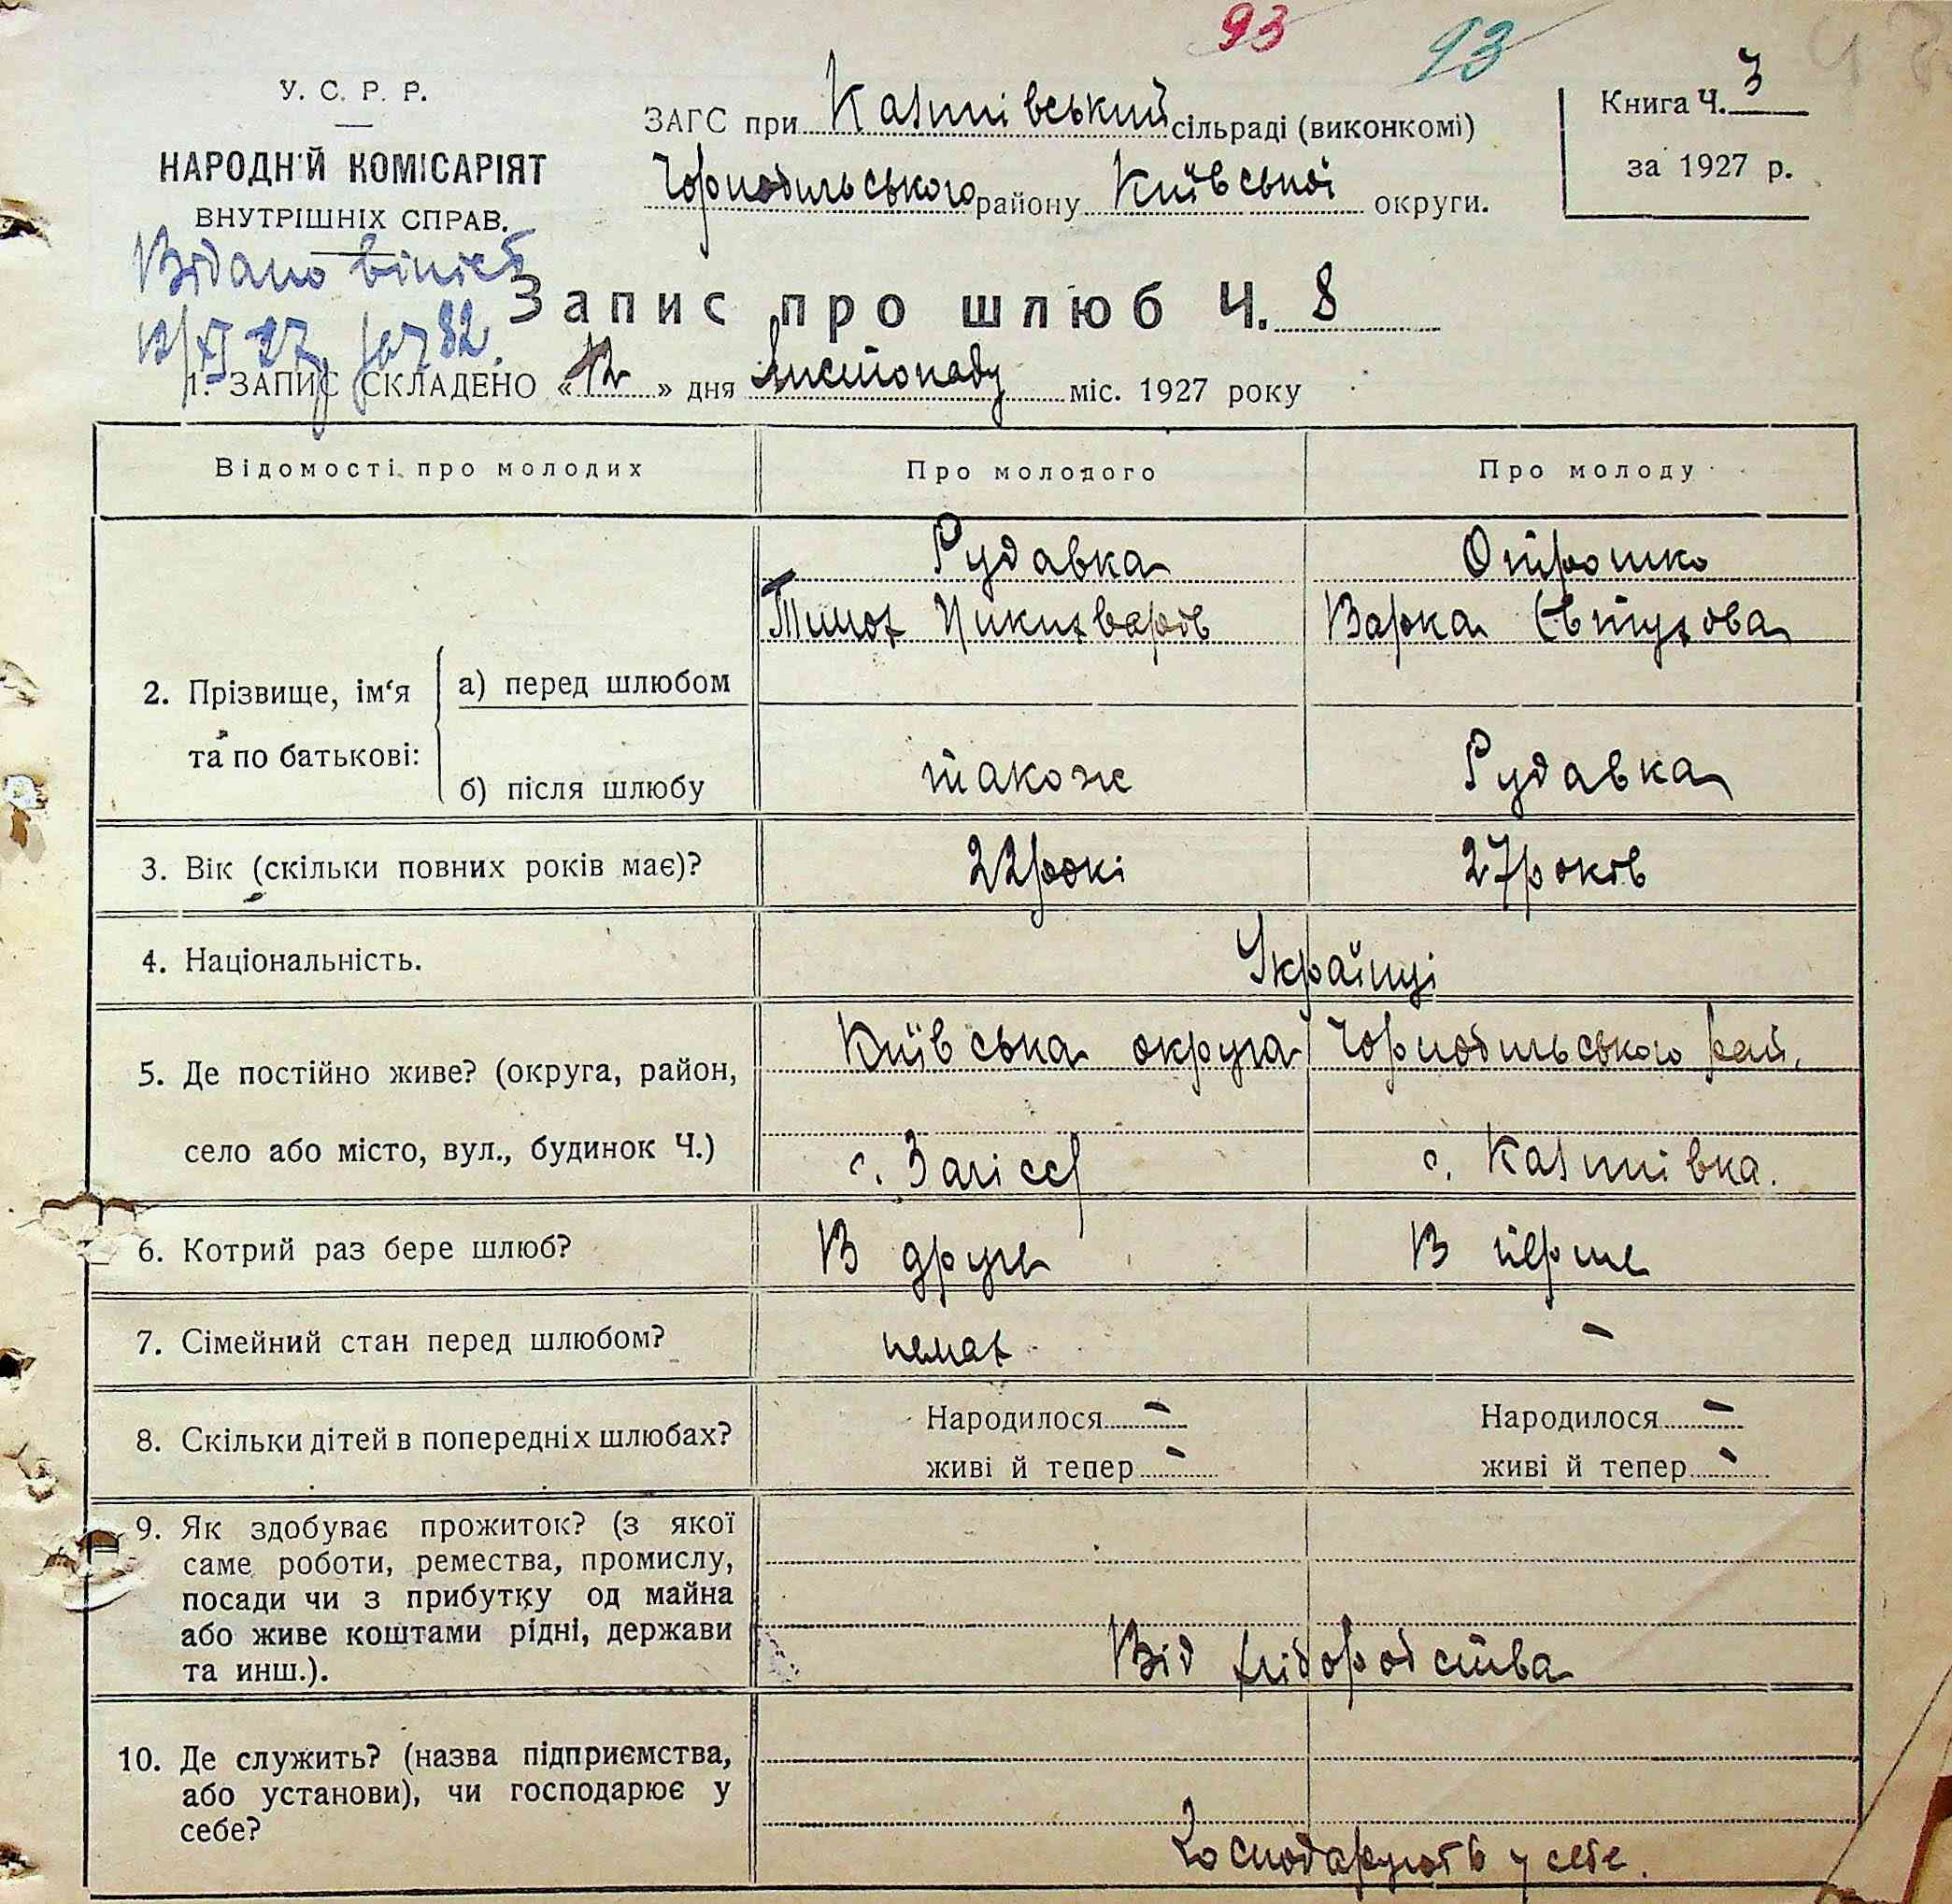 93 93
У. С. Р. Р.
НАРОДНІЙ КОМІСАРІЯТ
ВНУТРІШНІХ СПРАВ.
ЗАГС при сільраді (виконкомі)
Чорнобильського району Київської округи.
Книга Ч. 3
за 1927 р.
Видано
12/XI 27 82.
Запис про шлюб Ч. 8
1. ЗАПИС СКЛАДЕНО «12» дня Листопаду міс. 1927 року
Відомості про молодих Про молодого Про молоду
Рудавка Опрошко
Никифоров Варка Євтухова
2. Прізвище, ім‘я та по батькові:
а) перед шлюбом
б) після шлюбу також Рудавка
3. Вік (скільки повних років має)? 22 рокі 27 років
4. Національність. Українці
5. Де постійно живе? (округа, район, Київська округа Чорнобильського рай.
село або місто, вул., будинок Ч.) с. Залісся с.
6. Котрий раз бере шлюб? В друге В перше
7. Сімейний стан перед шлюбом? немає –
8. Скільки дітей в попередніх шлюбах? Народилося – Народилося –
живі й тепер – живі й тепер –
9. Як здобуває прожиток? (з якої
саме роботи, ремества, промислу,
посади чи з прибутку од майна
або живе коштами рідні, держави
та инш.). Від хліборобства
10. Де служить? (назва підприємства,
або установи), чи господарює у
себе? Господарують у себе.